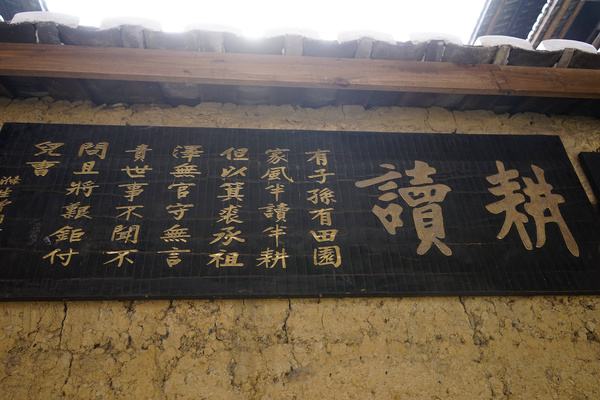 耕讀
有子孫有田園
家風半讀半耕
但以箕裘承祖
澤無官守無言
責世事不聞不
問且將艱鉅付
兒書